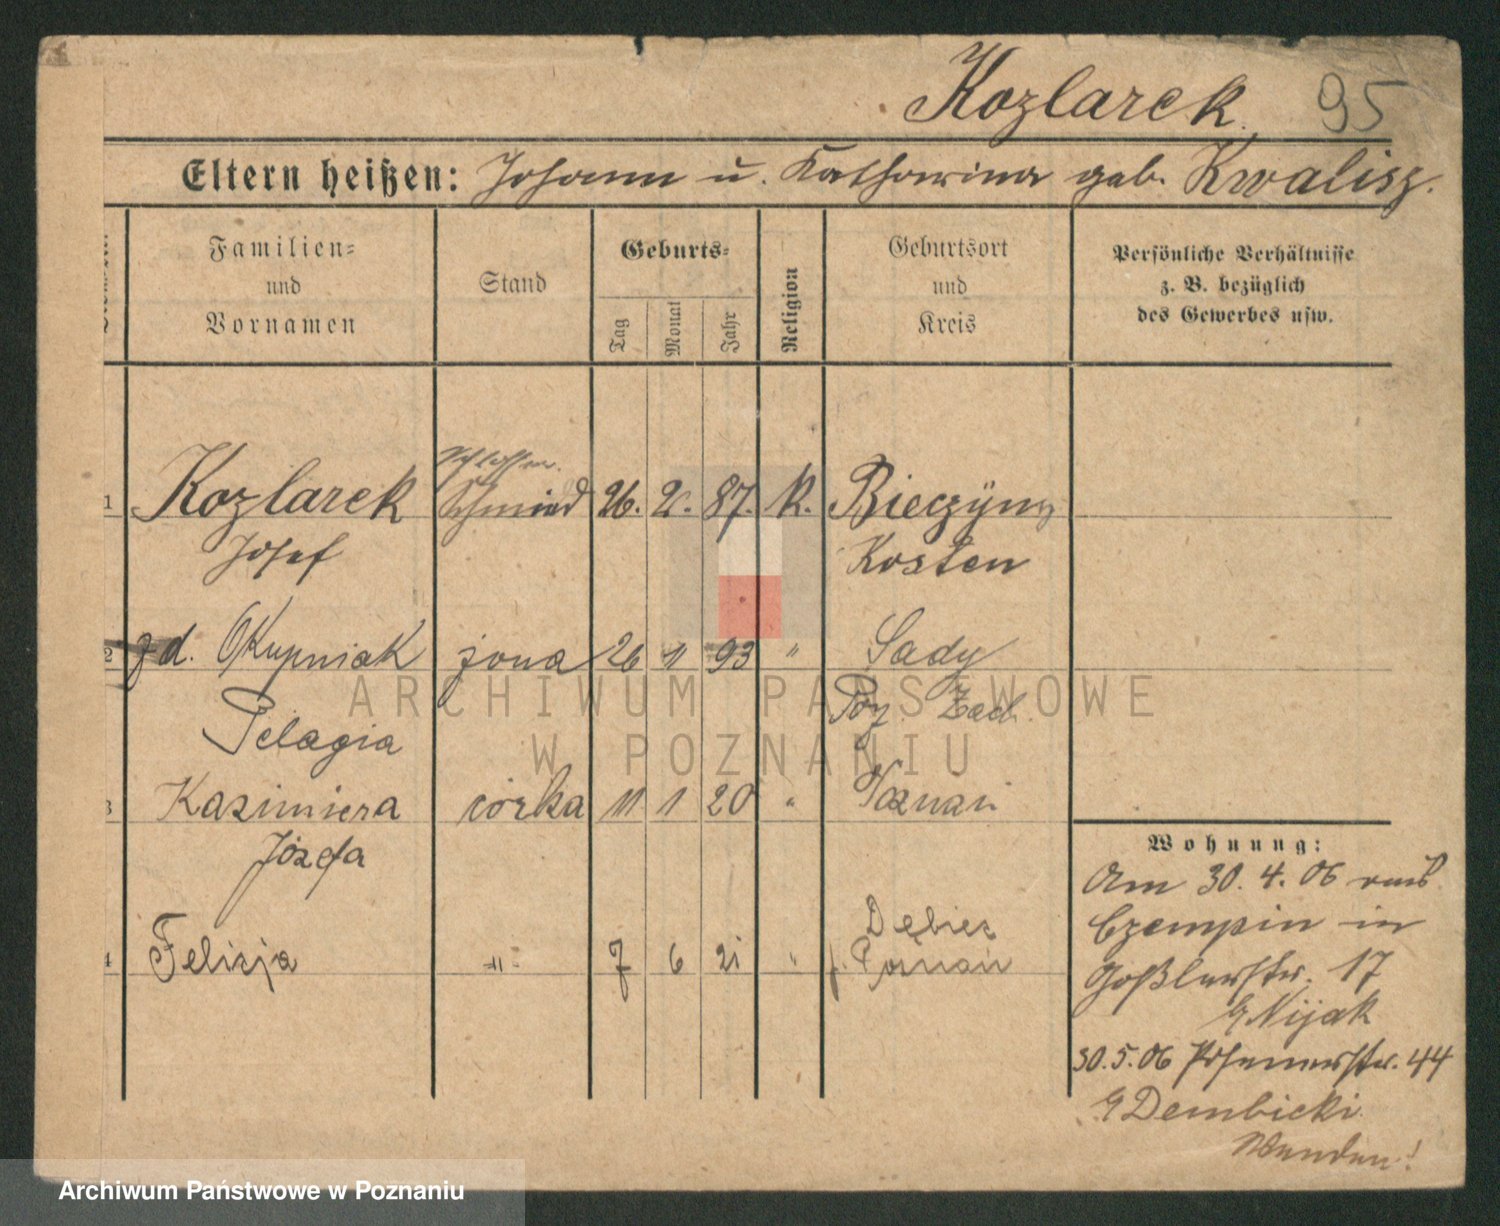 Kozlarek. 95
Eltern heißen: Johann u. Katharina geb. Kwalisz.
Familien- und Vornamen
Stand
Geburts-
Tag
Monat
Jahr
Religion
Geburtsort und Kreis
Persönliche Verhältnisse
z. B. bezüglich
des Gewerbes usw.
1 Kozlarek Schmied 26. 2. 87. K. Bieczyny
Josef Kosten
2 żd. Kupniak żona 26 11 93 " Sady
Pelagia Poz. Zach.
3 Kazimiera córka 11 1 20 " Poznań
Józefa
4 Felicja -"- 7 6 21 " Dębiec
p. Poznań
Wohnung:
Am 30. 4. 06 aus
Czempin in
Goßlerstr. 17
b/ Nijak
30. 5. 06 Posenerstr. 44
b/ Dembicki
Wenden!
ARCHIWUM PAŃSTWOWE
W POZNANIU
Archiwum Państwowe w Poznaniu